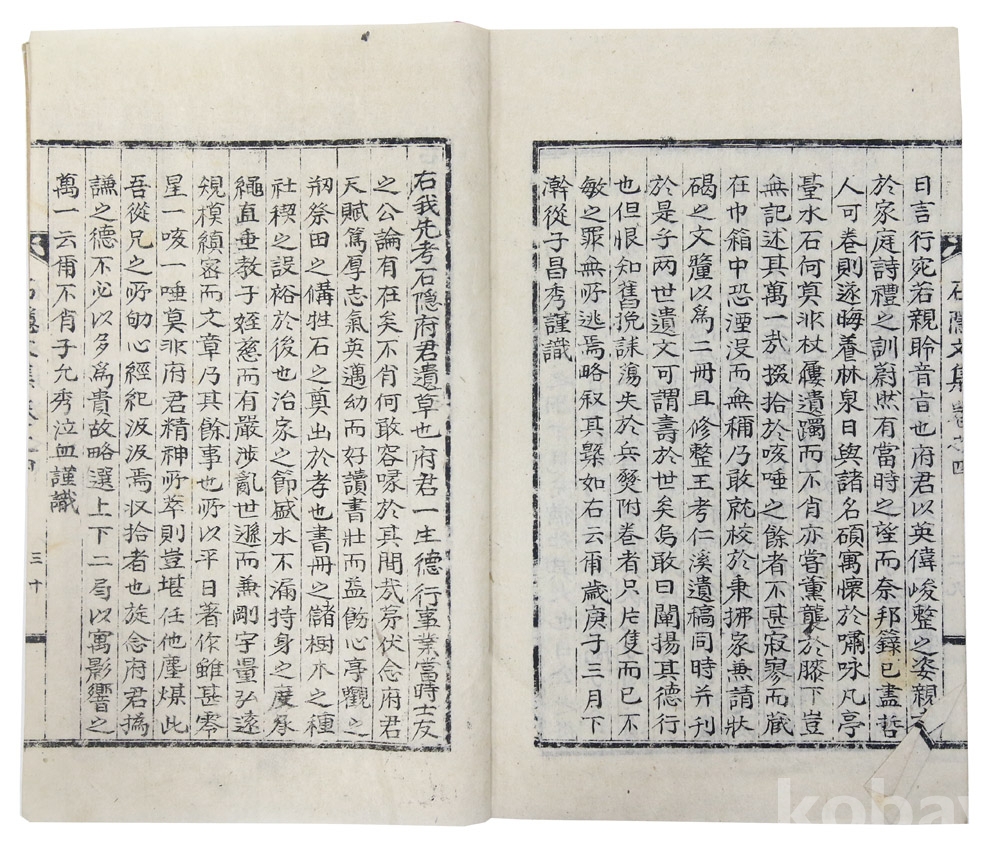 石隱文集卷之四
日言行宛若親聆音旨也府君以英偉峻整之姿親
於家庭詩禮之訓蔚然有當時之望而奈邦籙已盡哲
人可卷則遂晦養林泉日與諸名碩寓懷於嘯咏凡亭
臺水石何莫非杖屨遺躅而不肖亦嘗薰襲於膝下豈
無記述其萬一哉掇拾於咳唾之餘者不甚寂寥而藏
在巾箱中恐湮沒而無稱乃敢就校於秉拂家兼請狀
碣之文釐以爲二冊且修整王考仁溪遺稿同時幷刊
於是乎兩世遺文可謂壽於世矣烏敢曰闡揚其德行
也但恨知舊挽誄蕩失於兵燹附卷者只片隻而已不
敏之罪無所逃焉略叙其槩如右云爾歲庚子三月下
澣從子昌秀謹識
右我先考石隱府君遺草也府君一生德行事業當時士友
之公論有在矣不肖何敢容喙於其間哉第伏念府君
天賦篤厚志氣英邁幼而好讀書壯而益飭心亭觀之
刱祭田之備牲石之奠出於孝也書冊之儲樹木之種
社稧之設裕於後也治家之節盛水不漏持身之度承
繩直垂教子姪慈而有嚴涉亂世遜而兼剛宇量弘遠
規模縝密而文章乃其餘事也所以平日著作雖甚零
星一咳一唾莫非府君精神所萃則豈堪任他塵煤此
吾從兄之所劬心經紀汲汲焉收拾者也旋念府君撝
謙之德不必以多爲貴故略選上下二局以寓影響之
萬一云爾不肖子允秀泣血謹識
石隱文集卷之四
三十
kobay